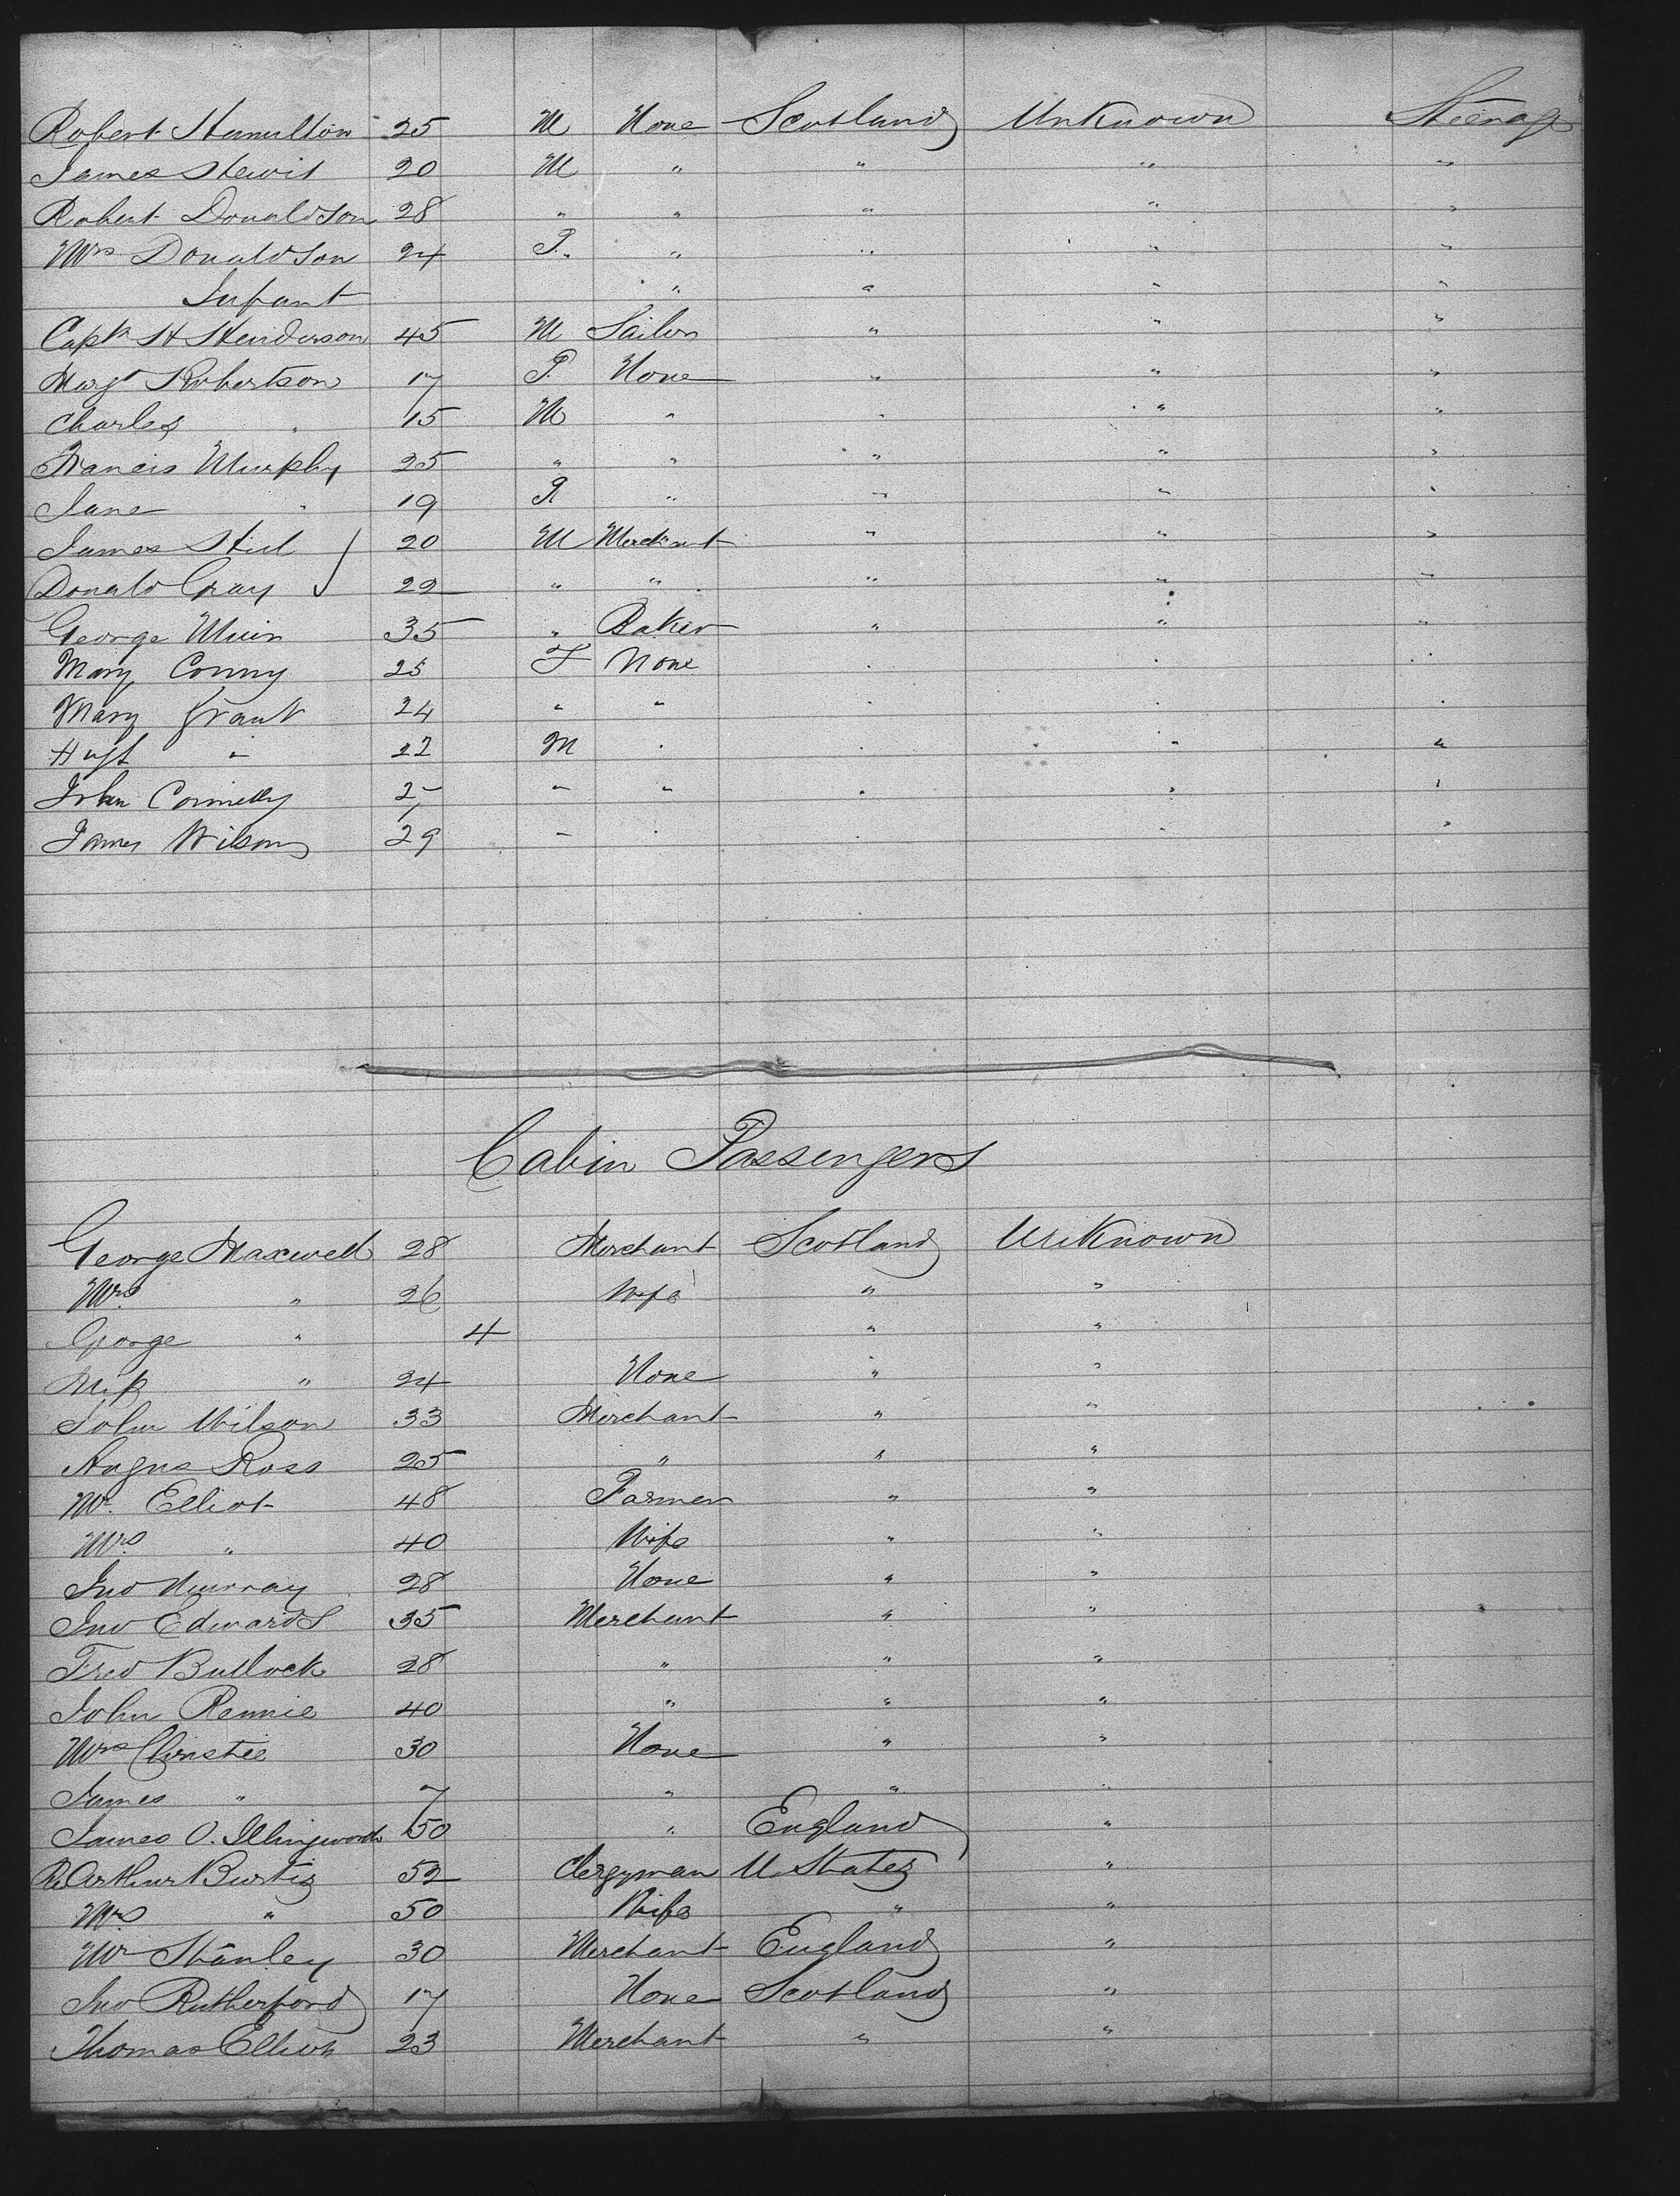 Robert Hamilton 25 M None Scotland Unknown Steerage
James 20 M " " " "
Robert Donaldson 28 " " " " "
Mrs Donaldson 24 F. " " " "
Infant " " " "
Captn H Henderson 45 M Sailor " " "
Margt Robertson 17 F. None " " "
Charles " 15 M " " " "
Francis Murphy 25 " " " " "
Jane " 19 F " " " "
James 20 M Merchant " " "
Donald Gray 22 " " " " "
George Muir 35 " Baker " " "
Mary Conny 25 F None " " "
Mary Grant 24 " " " " "
" 22 M " " " "
John Connelly " " " " "
James Wilson 29 " " " " "
Cabin Passengers
George Maxwell 28 Merchant Scotland Unknown
Mrs " 26 Wife " "
George " 4 " "
Miss " 24 None " "
John Wilson 33 Merchant " "
Angus Ross 25 " " "
Mr Elliot 48 Farmer " "
Mrs " 40 Wife " "
Jno Murray 28 None " "
Jno Edwards 35 Merchant " "
Fred Bullock 28 " " "
John Rennie 40 " " "
Mrs Christie 30 None " "
James " 7 " " "
James O. Illingworth 50 " England "
Arthur Burtis 52 Clergyman U States "
Mrs " 50 Wife " "
Mr Stanley 30 Merchant England "
Jno Rutherford 17 None Scotland "
Thomas Elliot 23 Merchant " "